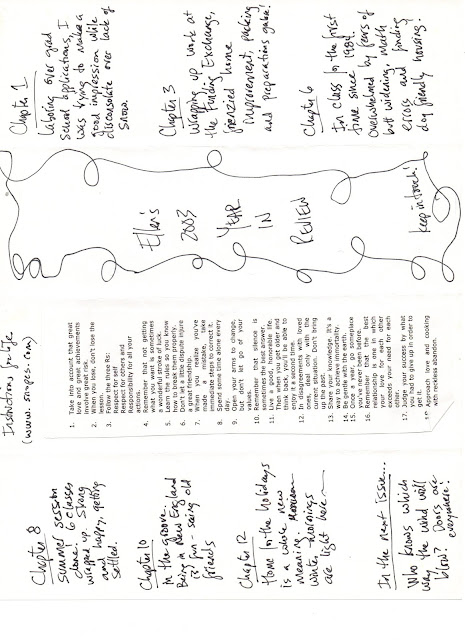 Chapter 1
Laboring over grad
school applications, I
was trying to make a
good impression while
disconsolate over lack of
snow
Chapter 3
Wrapping up work at
the Funding Exchange,
frenzied home
improvement, packing
and preparations galore!
Chapter 6
In class for the first
time since 1989.
Overwhelmed by fears of
butt widening, math
errors and finding
dog friendly housing.
Ellen's
2003
YEAR
IN
REVIEW
keep in touch!
Instructions for life
(www.snopes.com)
1. Take into account that great
love and great achievements
involve great risk.
2. When you lose, don't lose the
lesson.
3. Follow the three Rs:
Respect for self
Respect for others and
Responsibility for all your
actions.
4. Remember that not getting
what you want is sometimes
a wonderful stroke of luck.
5. Learn the rules so you know
how to break them properly.
6. Don't let a little dispute injure
a great friendship.
7. When you realize you've
made a mistake, take
immediate steps to correct it.
8. Spend some time alone every
day.
9. Open your arms to change,
but don't let go of your
values.
10. Remember that silence is
sometimes the best answer.
11. Live a good, honorable life.
Then when you get older and
think back, you'll be able to
enjoy it a second time.
12. In disagreements with loved
ones, deal only with the
current situation. Don't bring
up the past.
13. Share your knowledge. It's a
way to achieve immortality.
14. Be gentle with the earth.
15. Once a year, go someplace
you've never been before.
16. Remember that the best
relationship is one in which
your love for each other
exceeds your need for each
other.
17. Judge your success by what
you had to give up in order to
get it.
18. Approach love and cooking
with reckless abandon.
Chapter 8
Summer session
done. 6 classes
wrapped up. Strong
and happy, getting
settled.
Chapter 10
In the groove.
Being in New England
is fun - seeing old
friends
Chapter 12
Home for the holidays
is a whole new
meaning.
Winter mornings
are light here
In the next issue...
Who knows which
way the wind will
blow? Doors are
everywhere.